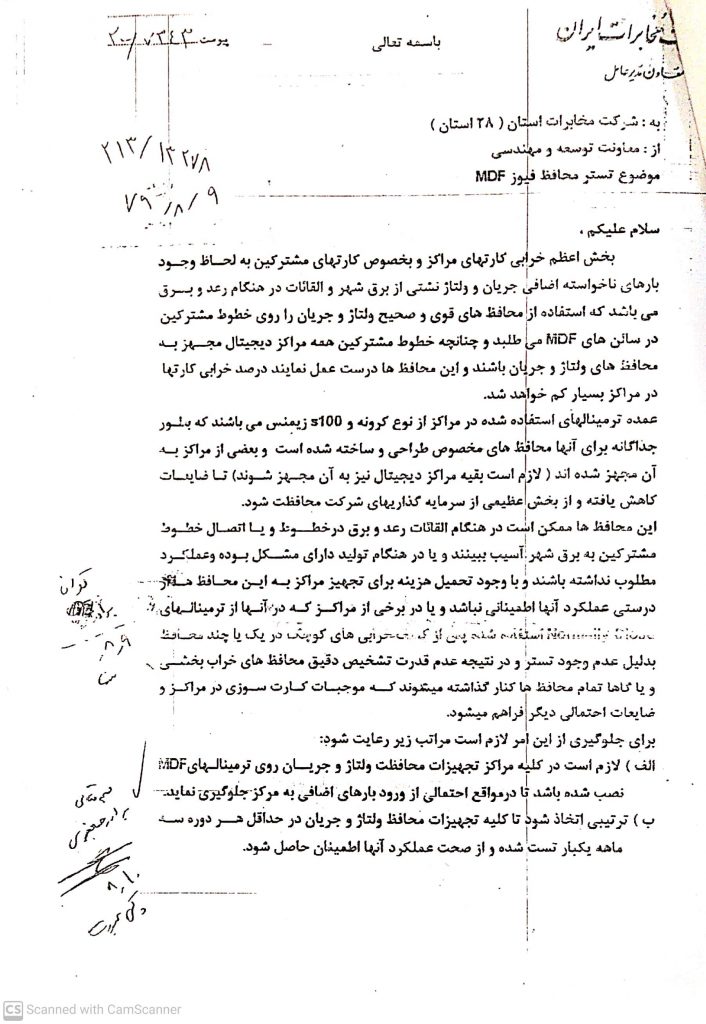 مخابرات ایران
معاون مدیرعامل
باسمه تعالی
پیوست ۲۰۰/۷۳۴۳
به : شرکت مخابرات استان ( ۲۸ استان )
از : معاونت توسعه و مهندسی
موضوع تستر محافظ فیوز MDF
۲۱۳/۱۳۲۷۸
۷۹/۸/۹
سلام علیکم ،
بخش اعظم خرابی کارتهای مراکز و بخصوص کارتهای مشترکین به لحاظ وجود
بارهای ناخواسته اضافی جریان و ولتاژ نشتی از برق شهر و القائات در هنگام رعد و برق
می باشد که استفاده از محافظ های قوی و صحیح ولتاژ و جریان را روی خطوط مشترکین
در سالن های MDF می طلبد و چنانچه خطوط مشترکین همه مراکز دیجیتال مجهز به
محافظ های ولتاژ و جریان باشند و این محافظ ها درست عمل نمایند درصد خرابی کارتها
در مراکز بسیار کم خواهد شد.
عمده ترمینالهای استفاده شده در مراکز از نوع کرونه و s100 زیمنس می باشند که بطور
جداگانه برای آنها محافظ های مخصوص طراحی و ساخته شده است و بعضی از مراکز به
آن مجهز شده اند ( لازم است بقیه مراکز دیجیتال نیز به آن مجهز شوند) تا ضایعات
کاهش یافته و از بخش عظیمی از سرمایه گذاریهای شرکت محافظت شود.
این محافظ ها ممکن است در هنگام القائات رعد و برق درخطوط و یا اتصال خطوط
مشترکین به برق شهر آسیب ببینند و یا در هنگام تولید دارای مشکل بوده وعملکرد
مطلوب نداشته باشند و با وجود تحمیل هزینه برای تجهیز مراکز به این محافظ ها از
درستی عملکرد آنها اطمینانی نباشد و یا در برخی از مراکز که در آنها از ترمینالهای
Normally Close استفاده شده پس از کشف خرابی های کوچک در یک یا چند محافظ
بدلیل عدم وجود تستر و در نتیجه عدم قدرت تشخیص دقیق محافظ های خراب بخشی
و یا گاها تمام محافظ ها کنار گذاشته میشوند که موجبات کارت سوزی در مراکز و
ضایعات احتمالی دیگر فراهم میشود.
برای جلوگیری از این امر لازم است مراتب زیر رعایت شود:
الف ) لازم است در کلیه مراکز تجهیزات محافظت ولتاژ و جریان روی ترمینالهای MDF
نصب شده باشد تا درمواقع احتمالی از ورود بارهای اضافی به مرکز جلوگیری نماید.
ب ) ترتیبی اتخاذ شود تا کلیه تجهیزات محافظ ولتاژ و جریان در حداقل هر دوره سه
ماهه یکبار تست شده و از صحت عملکرد آنها اطمینان حاصل شود.
CS Scanned with CamScanner